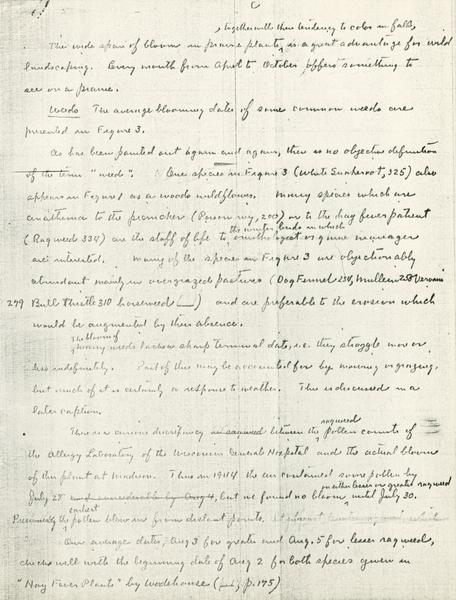 , together with their tendency to color in fall,
The wide span of bloom in prairie plants is a great advantage for wild
landscaping. Every month from April to October offers something to
see on a prairie.
Weeds The average blooming dates of some common weeds are
presented in Figure 3.
As has been pointed out again and again, there is no objective definition
of the term "weeds". One species in Figure 3 (White Snakeroot, 325) also
appears in Figure 1 as a woods wildflower. Many species which are
anathema to the picnicker (Poison ivy, 200) or to the hay fever patient
(Ragweed 334) are the staff of life to the winter birds in which
ornithologist or game manager
are interested. Many of the species in Figure 3 are objectionably
abundant mainly in overgrazed pastures (Dog Fennel 254, Mullein 258 Vervain
279 Bull thistle 310 horseweed ___) and are preferable to the erosion which
would be augmented by their absence.
The bloom of
many weeds lacks a sharp terminal date, i.e. they straggle more or
less indefinitely. Part of this may be accounted for by mowing or grazing,
but much of it is certainly a response to weather. This is discussed in a
later caption.
There is a curious discrepancy between the ragweed pollen counts of
the Allergy Laboratory of the Wisconsin General Hospital and the actual bloom
of this plant at Madison. Thus in 1944 the air contained some pollen by
July 28 and considerable by Aug 4, but we found no bloom on either lesser or greater ragweed until July 30.
Presumably the earliest pollen blows in from distant points.
Our average dates, Aug 3 for greater and Aug. 5 for lesser ragweed,
checks well with the beginning date of Aug 2 for both species given in
"Hay Fever Plants" by Wodehouse (___, p. 175)